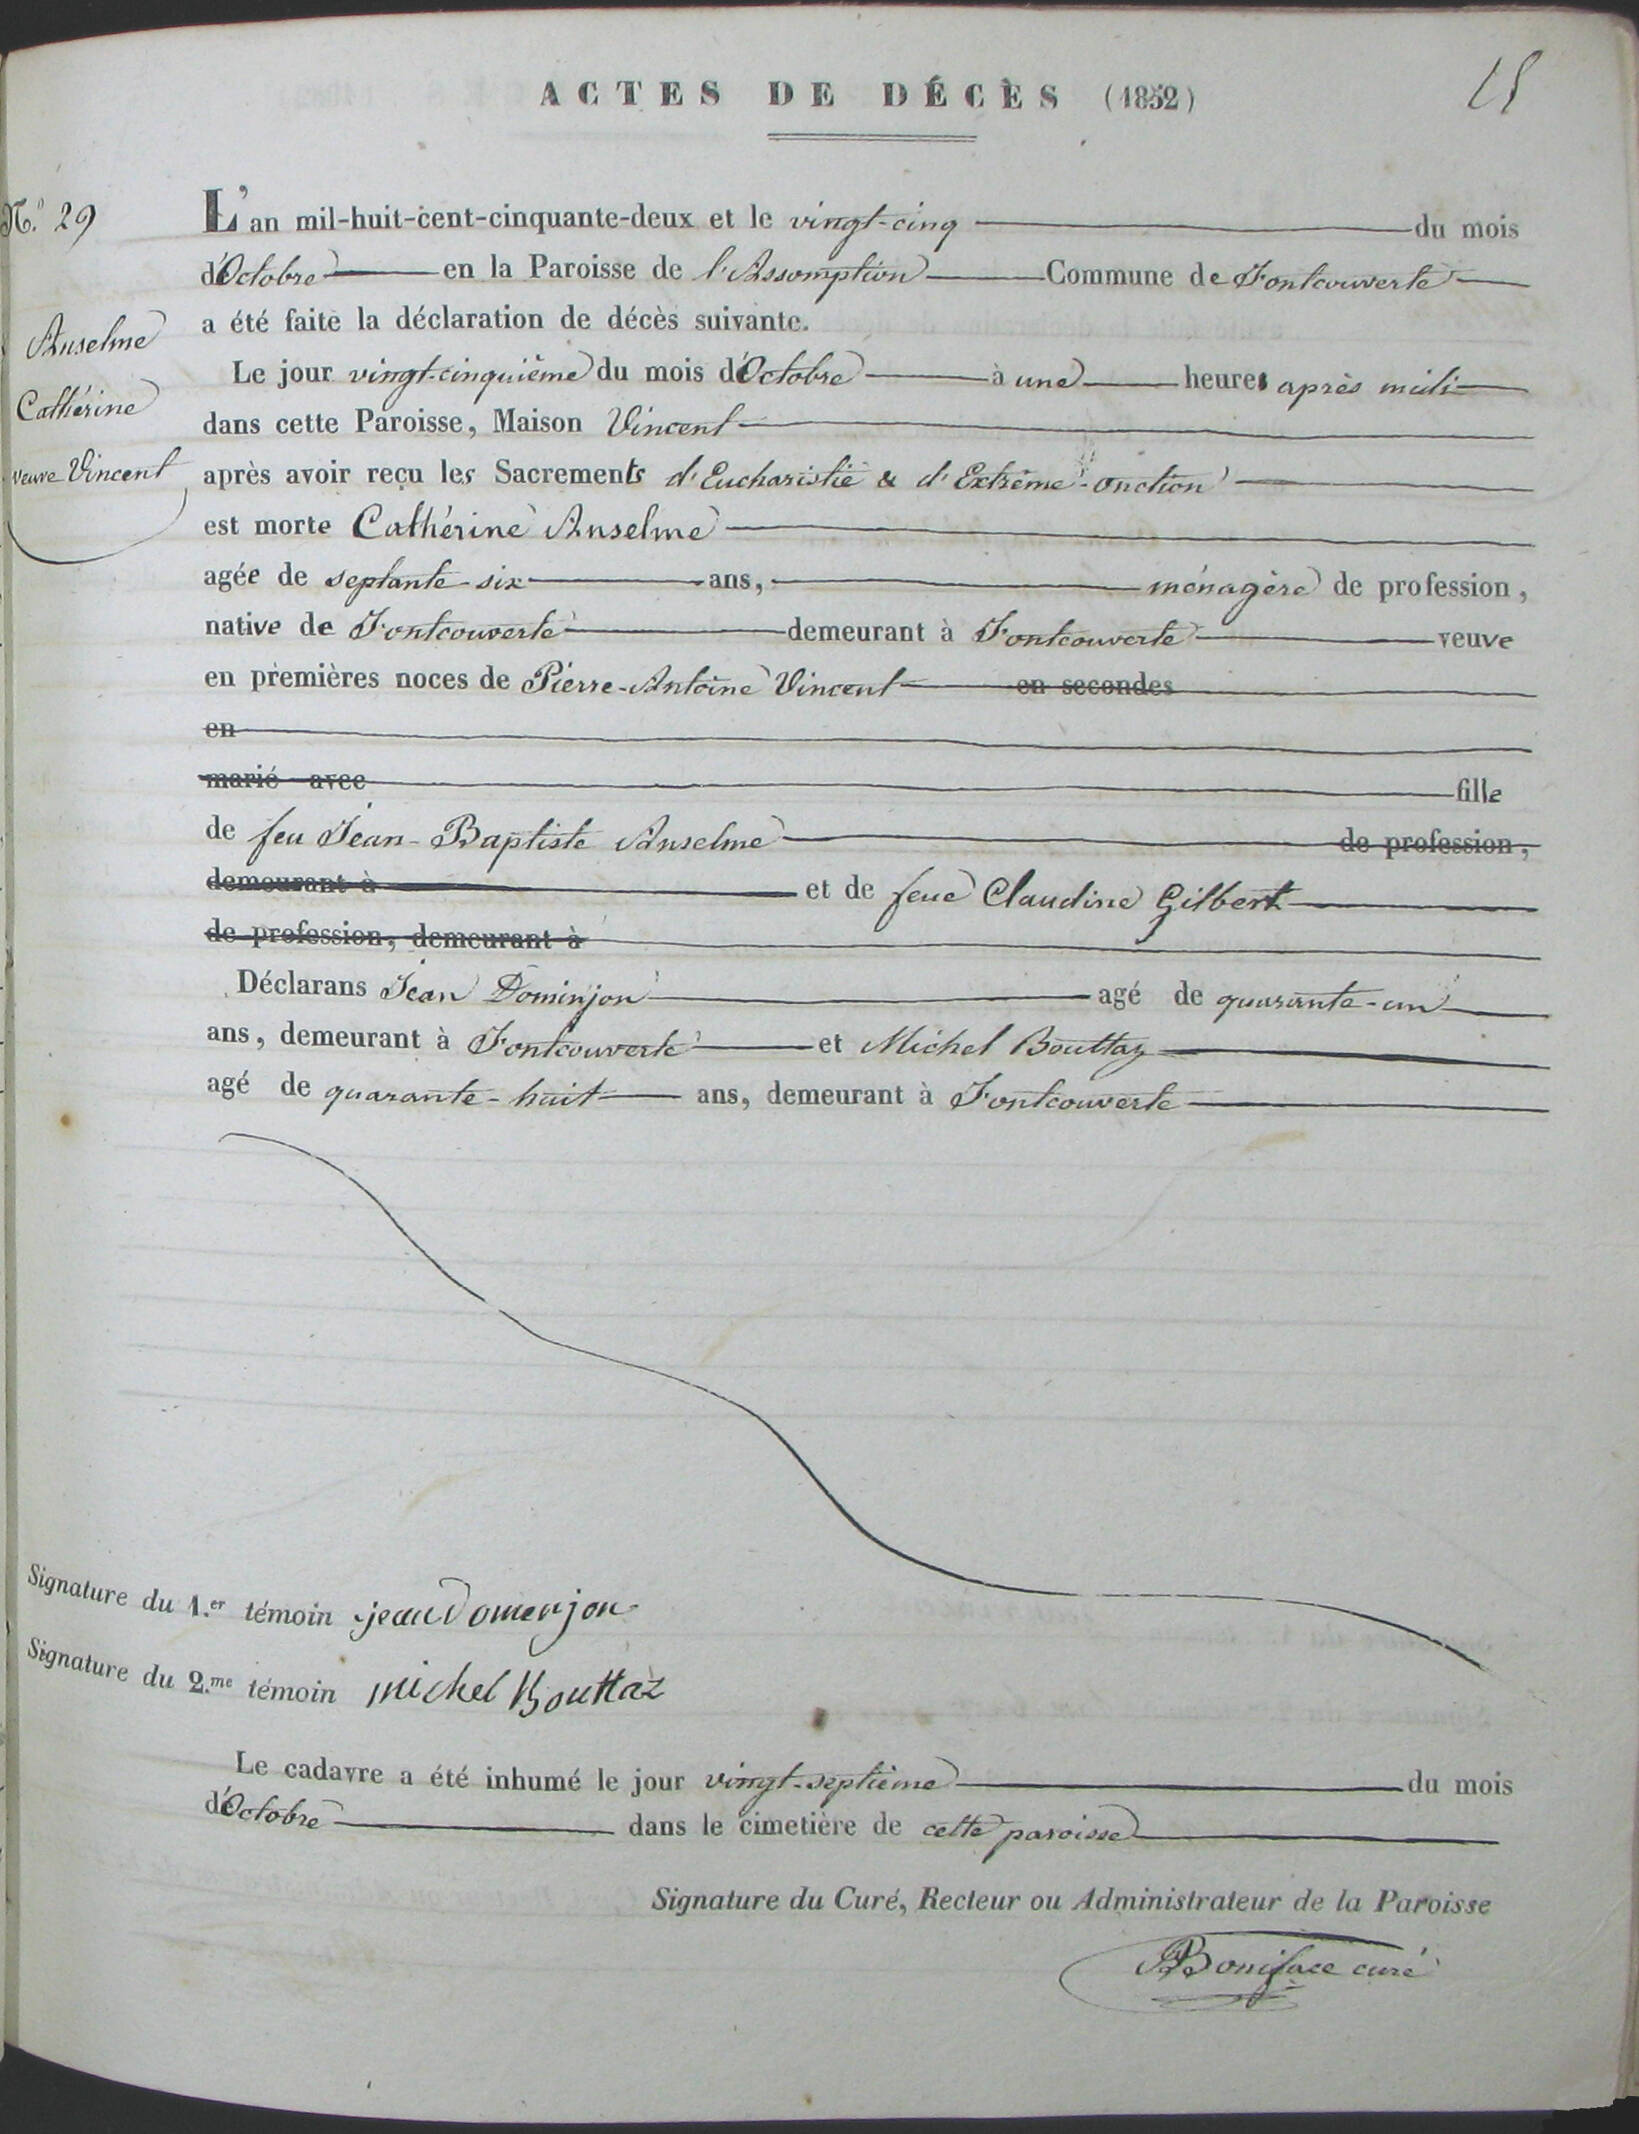 ACTES DE DÉCÈS (1852)
15
N.º 29
Anselme
Cathérine
veuve Vincent
L'an mil-huit-cent-cinquante-deux et le vingt-cinq du mois
d'Octobre en la Paroisse de l'Assomption Commune de Fontcouverte
a été faite la déclaration de décès suivante.
Le jour vingt-cinquième du mois d'Octobre à une heures après midi
dans cette Paroisse, Maison Vincent
après avoir reçu les Sacrements d'Eucharistie & d'Extrême-onction
est morte Cathérine Anselme
agée de septante-six ans, ménagère de profession,
native de Fontcouverte demeurant à Fontcouverte veuve
en premières noces de Pierre-Antoine Vincent en secondes
en
marié avec fille
de feu Jean-Baptiste Anselme de profession,
demeurant à et de feue Claudine Gilbert
de profession, demeurant à
Déclarans Jean Dominjon agé de quarante-un
ans, demeurant à Fontcouverte et Michel Bouttaz
agé de quarante-huit ans, demeurant à Fontcouverte
Signature du 1.er témoin jean Domenjon
Signature du 2.me témoin michel Bouttaz
Le cadavre a été inhumé le jour vingt-septième du mois
d'Octobre dans le cimetière de cette paroisse
Signature du Curé, Recteur ou Administrateur de la Paroisse
Boniface curé